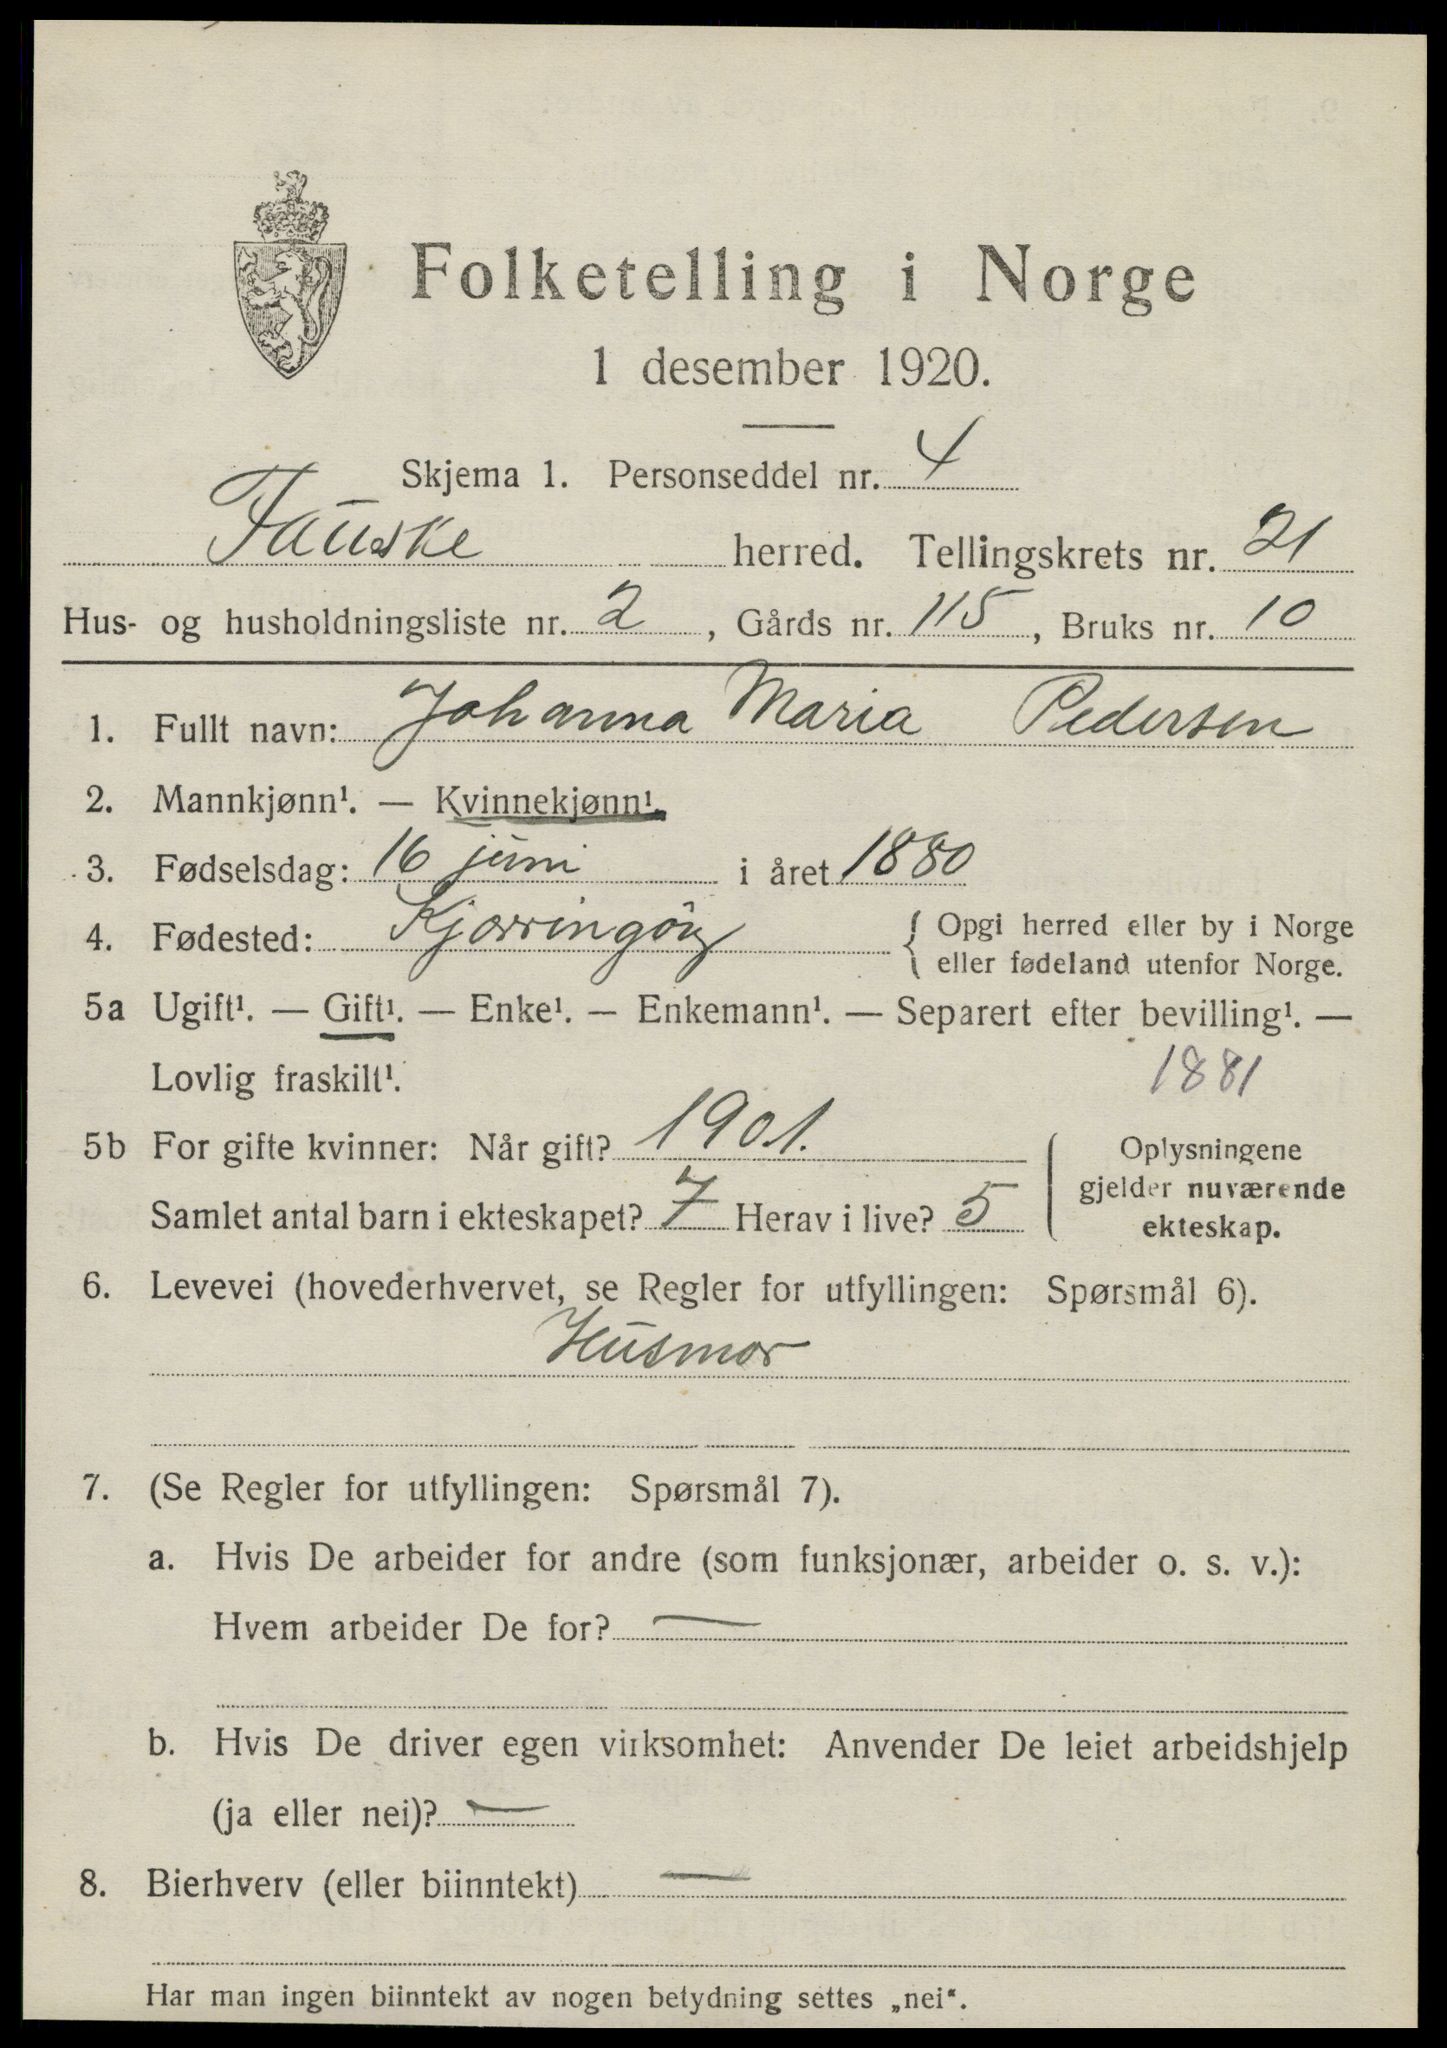 Folketelling i Norge
1 desember 1920.
Skjema 1. Personseddel nr. 4
Fauske herred. Tellingskrets nr. 21
Hus- og husholdningsliste nr. 2, Gårds nr. 115, Bruks nr. 10
1. Fullt navn: Johanna Maria Pedersen
2. Mannkjønn¹. — Kvinnekjønn¹.
3. Fødselsdag: 16 juni i året 1880
4. Fødested: Kjærringöy { Opgi herred eller by i Norge
eller fødeland utenfor Norge.
5a Ugift¹. — Gift¹. — Enke¹. — Enkemann¹. — Separert efter bevilling¹. —
Lovlig fraskilt¹. 1881
5b For gifte kvinner: Når gift? 1901.
Samlet antal barn i ekteskapet? 7 Herav i live? 5
Oplysningene
gjelder nuværende
ekteskap.
6. Levevei (hovederhvervet, se Regler for utfyllingen: Spørsmål 6).
Husmor
7. (Se Regler for utfyllingen: Spørsmål 7).
a. Hvis De arbeider for andre (som funksjonær, arbeider o. s. v.):
Hvem arbeider De for? —
b. Hvis De driver egen virksomhet: Anvender De leiet arbeidshjelp
(ja eller nei)? —
8. Bierhverv (eller biinntekt) —
Har man ingen biinntekt av nogen betydning settes „nei“.